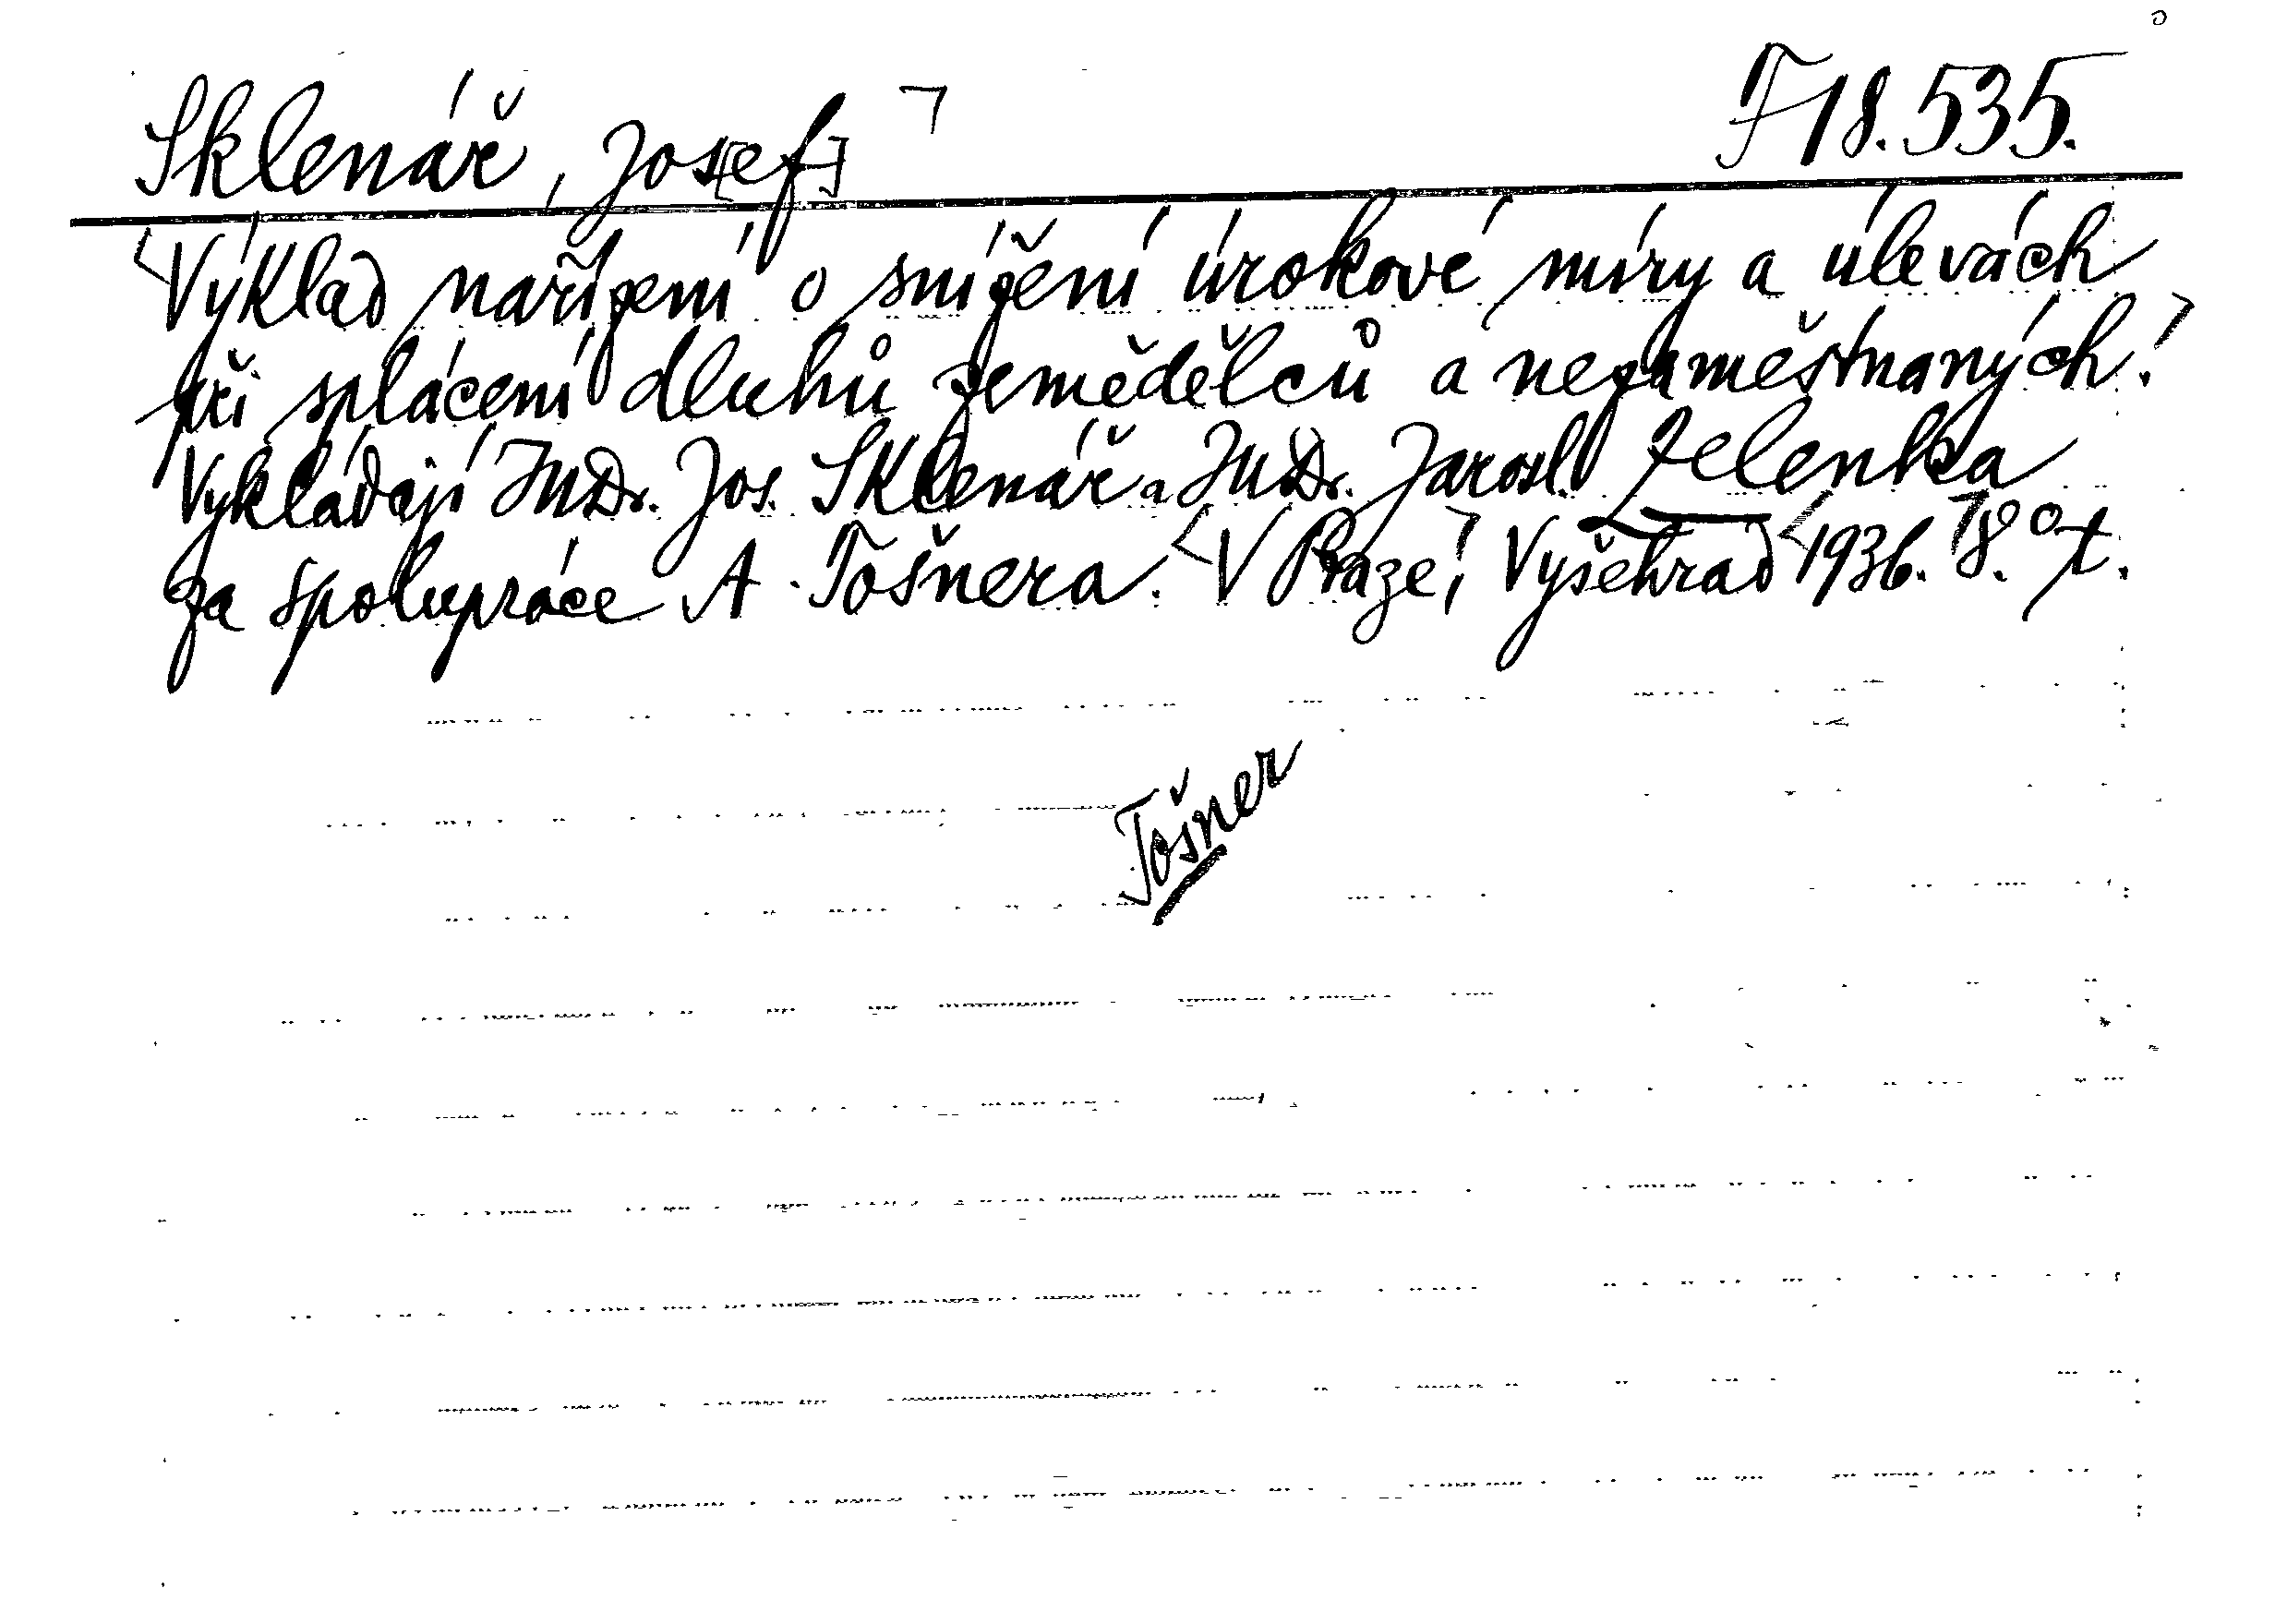 Sklenář, Jos[ef] F 18.535.
Výklad nařízení o snížení úrokové míry a úlevách
při splácení dluhů zemědělců a nezaměstnaných.
Vykládají JUDr. Jos. Sklenář a JUDr. Jarosl. Zelenka
za spolupráce A. Tošnera. V Praze, Vyšehrad 1936. 8° t.
Tošner